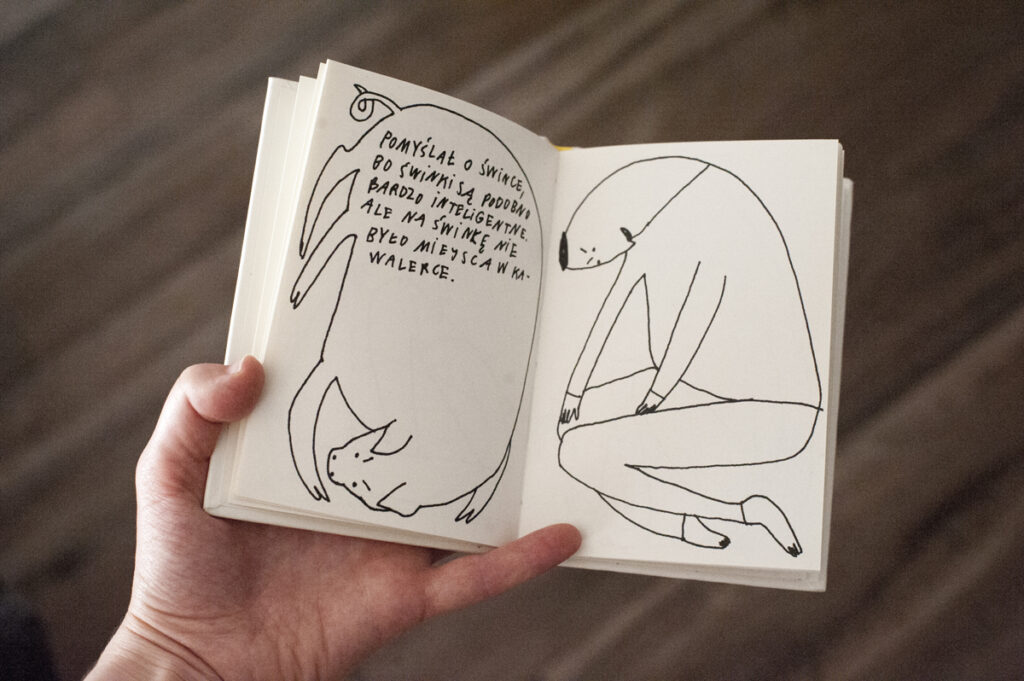 POMYŚLAŁ O ŚWINCE,
BO ŚWINKI SĄ PODOBNO
BARDZO INTELIGENTNE.
ALE NA ŚWINKĘ NIE
BYŁO MIEJSCA W KA-
WALERCE.